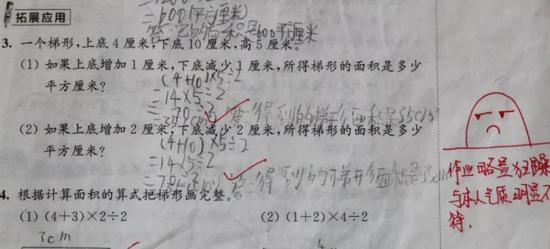 =600(平方厘米)
拓展应用
3. 一个梯形,上底 4 厘米,下底 10 厘米,高 5 厘米。
(1) 如果上底增加 1 厘米,下底减少 1 厘米,所得梯形的面积是多少
平方厘米?
(4+10)×5÷2
=14×5÷2
=70÷2
答:得到的梯形面积是35
(2) 如果上底增加 2 厘米,下底减少 2 厘米,所得梯形的面积是多少
平方厘米?
(4+10)×5÷2
=14×5÷2
=70÷2
答:得到的梯形面积是35cm
4. 根据计算面积的算式把梯形画完整。
(1) (4+3)×2÷2
(2) (1+2)×4÷2
3cm
4
作业略显狂躁
与本人气质明显不
符.